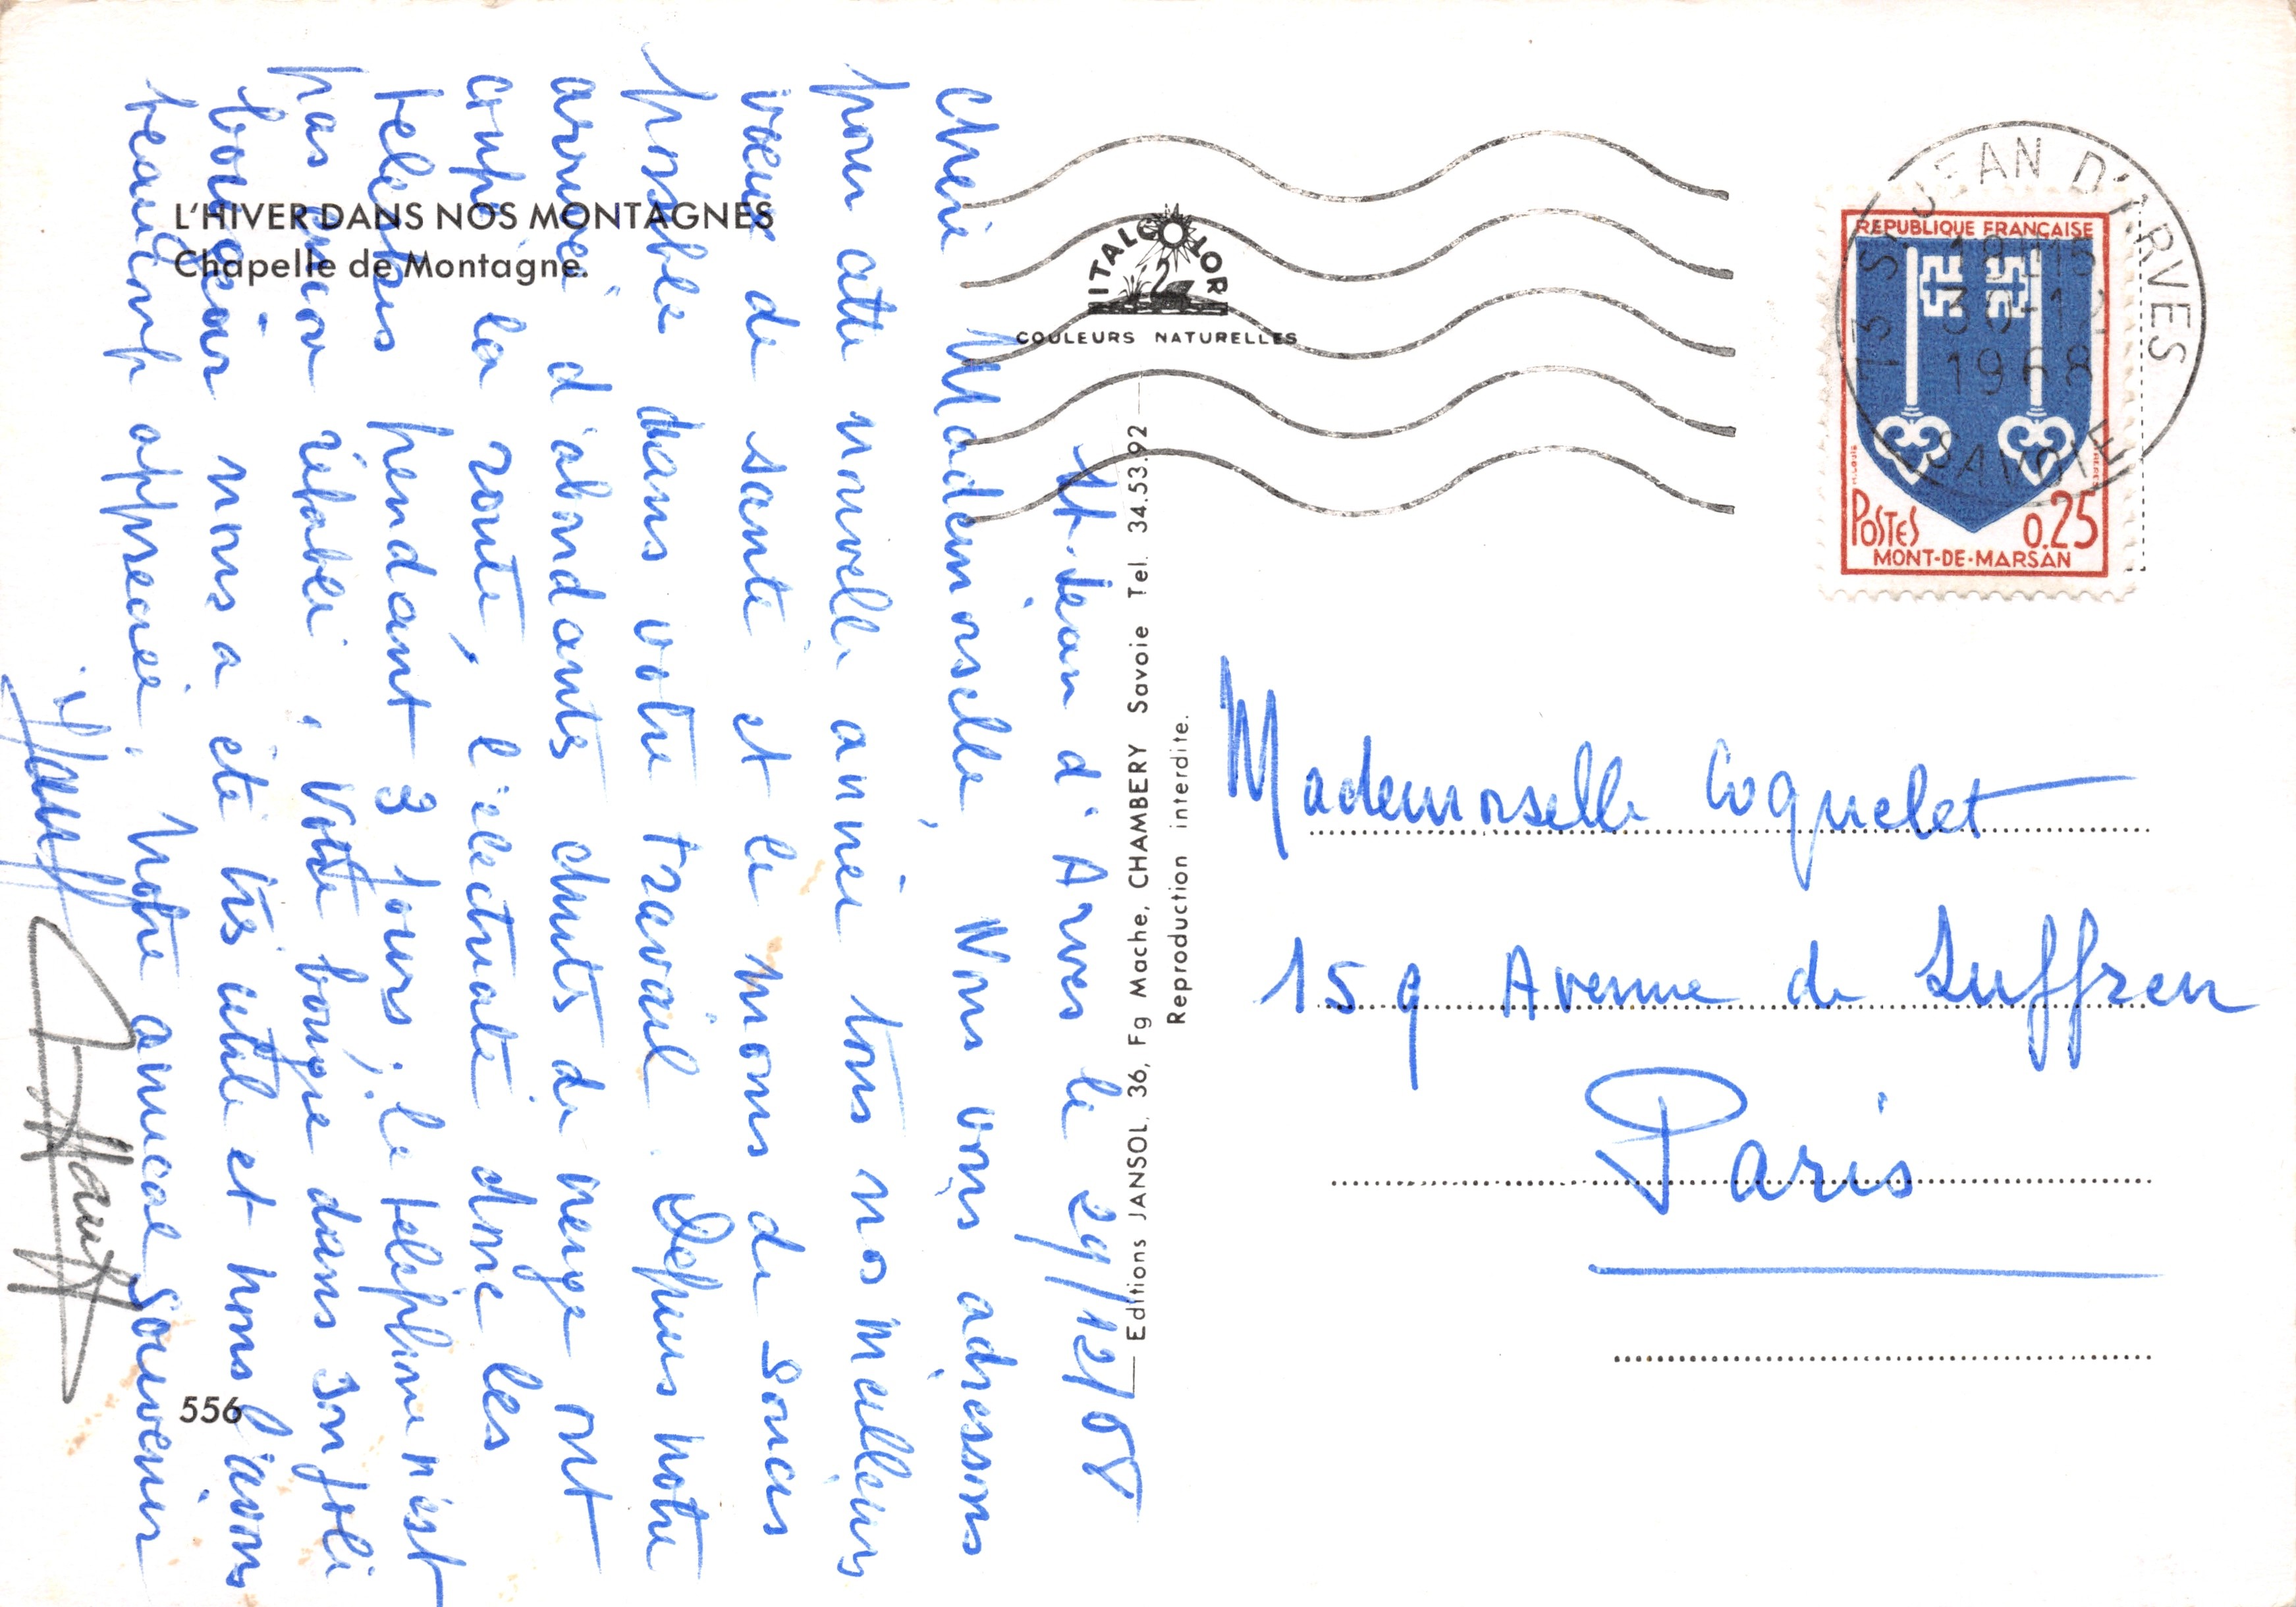 L'HIVER DANS NOS MONTAGNES
Chapelle de Montagne.
556
ITALCOLOR
2
COULEURS NATURELLES
Editions JANSOL, 36, Fg Mache, CHAMBERY Savoie Tel. 34.53.92
Reproduction interdite.
St. Jean d'Arves le 29/12/68
Chère Mademoiselle, Nous vous adressons
pour cette nouvelle année tous nos meilleurs
voeux de santé et le moins de soucis
possible dans votre travail. Depuis notre
arrivée d'abondants chutes de neige ont
coupé la route, l'électricité donc les
pendant 3 jours ; le téléphone n'est
pas encore rétabli. Votre bougie dans son joli
bougeoir nous a été très utile et nous l'avons
beaucoup appréciée. Notre amical souvenir
Hauff
Hauff
73 ST JEAN D'ARVES
19H15
30-12
1968
SAVOIE
REPUBLIQUE FRANÇAISE
POSTES 0.25
MONT-DE-MARSAN
Mademoiselle Coquelet
159 Avenue de Suffren
Paris